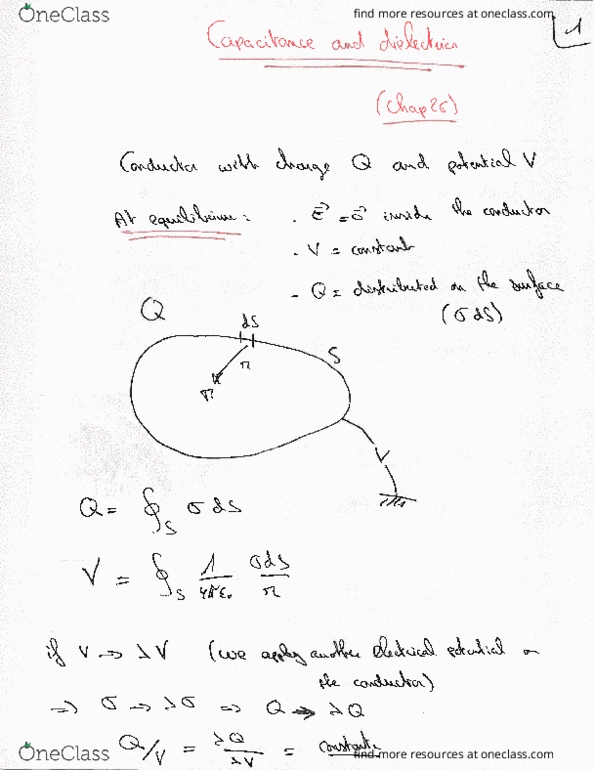 OneClass
find more resources at oneclass.com
1
Capacitance and dielectrics
(Chap 26)
Conductor with charge Q and potential V
At equilibrium: . E⃗ = 0⃗ inside the conductor
. V = constant
- Q = distributed on the surface
(σ dS)
Q
dS
S
r
V
Q = ∮_S σ dS
V = ∮_S 1/(4πε₀) σdS/r
if V → λV (we apply another electrical potential on
the conductor)
⇒ σ → λσ ⇒ Q → λQ
Q/V = λQ/λV = constante
OneClass
find more resources at oneclass.com